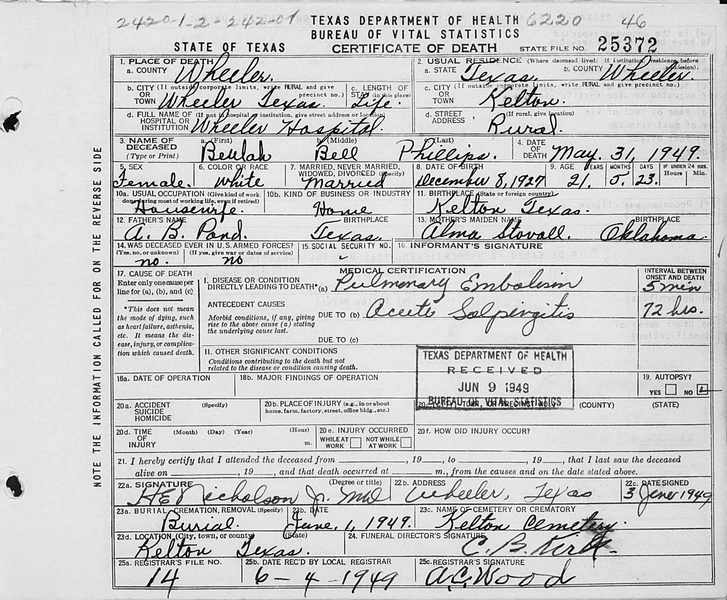 2420-1-2-242-07 TEXAS DEPARTMENT OF HEALTH 6220 46
BUREAU OF VITAL STATISTICS
STATE OF TEXAS CERTIFICATE OF DEATH STATE FILE NO. 25372
1. PLACE OF DEATH 2. USUAL RESIDENCE (Where deceased lived: If institution, residence before
a. COUNTY Wheeler. a. STATE Texas. b. COUNTY Wheeler.
b. CITY (If outside corporate limits, write RURAL and give precinct no.) c. LENGTH OF c. CITY (If outside corporate limits, write RURAL and give precinct no.)
OR TOWN Wheeler Texas. Life. OR TOWN Kelton.
d. FULL NAME OF (If not in hospital or institution, give street address or location) d. STREET (If rural, give location)
HOSPITAL OR INSTITUTION Wheeler Hospital. ADDRESS Rural.
3. NAME OF DECEASED a. (First) b. (Middle) c. (Last) 4. DATE OF DEATH
(Type or Print) Beulah Bell Phillips. May. 31, 1949.
5. SEX 6. COLOR OR RACE 7. MARRIED, NEVER MARRIED, WIDOWED, DIVORCED (Specify) 8. DATE OF BIRTH 9. AGE YEARS MONTHS DAYS IF UNDER 24 HRS. Hours Min.
Female. White Married December 8, 1927 21. 5. 23.
10a. USUAL OCCUPATION (Give kind of work done during most of working life, even if retired) 10b. KIND OF BUSINESS OR INDUSTRY 11. BIRTHPLACE (State or foreign country)
Housewife. Home Kelton Texas.
12. FATHER'S NAME BIRTHPLACE 13. MOTHER'S MAIDEN NAME BIRTHPLACE
A. B. Pond. Texas. Alma Stovall. Oklahoma.
14. WAS DECEASED EVER IN U.S. ARMED FORCES? 15. SOCIAL SECURITY NO. 16. INFORMANT'S SIGNATURE
(Yes, no, or unknown) (If yes, give war or dates of service)
no. no
17. CAUSE OF DEATH MEDICAL CERTIFICATION INTERVAL BETWEEN ONSET AND DEATH
Enter only one cause per line for (a), (b), and (c)
I. DISEASE OR CONDITION DIRECTLY LEADING TO DEATH* (a) Pulmonary Embolism 5 min
*This does not mean the mode of dying, such as heart failure, asthenia, etc. It means the disease, injury, or complication which caused death.
ANTECEDENT CAUSES
Morbid conditions, if any, giving rise to the above cause (a) stating the underlying cause last.
DUE TO (b) Acute Salpingitis 72 hrs.
DUE TO (c)
II. OTHER SIGNIFICANT CONDITIONS
Conditions contributing to the death but not related to the disease or condition causing death.
TEXAS DEPARTMENT OF HEALTH
RECEIVED
JUN 9 1949
BUREAU OF VITAL STATISTICS
18a. DATE OF OPERATION 18b. MAJOR FINDINGS OF OPERATION 19. AUTOPSY?
YES NO
20a. ACCIDENT SUICIDE HOMICIDE (Specify) 20b. PLACE OF INJURY (e.g., in or about home, farm, factory, street, office bldg., etc.) (COUNTY) (STATE)
20d. TIME OF INJURY (Month) (Day) (Year) (Hour) m. 20e. INJURY OCCURRED WHILE AT WORK NOT WHILE AT WORK 20f. HOW DID INJURY OCCUR?
21. I hereby certify that I attended the deceased from , 19 , to , 19 , that I last saw the deceased
alive on , 19 , and that death occurred at m., from the causes and on the date stated above.
22a. SIGNATURE (Degree or title) 22b. ADDRESS 22c. DATE SIGNED
H E Nicholson Jr. MD Wheeler, Texas 3 June 1949
23a. BURIAL, CREMATION, REMOVAL (Specify) 23b. DATE 23c. NAME OF CEMETERY OR CREMATORY
Burial. June, 1, 1949. Kelton Cemetery.
23d. LOCATION (City, town, or county) (State) 24. FUNERAL DIRECTOR'S SIGNATURE
Kelton Texas. C. B. Kirk.
25a. REGISTRAR'S FILE NO. 25b. DATE REC'D BY LOCAL REGISTRAR 25c. REGISTRAR'S SIGNATURE
14 6-4-1949 A.C. Wood
NOTE THE INFORMATION CALLED FOR ON THE REVERSE SIDE